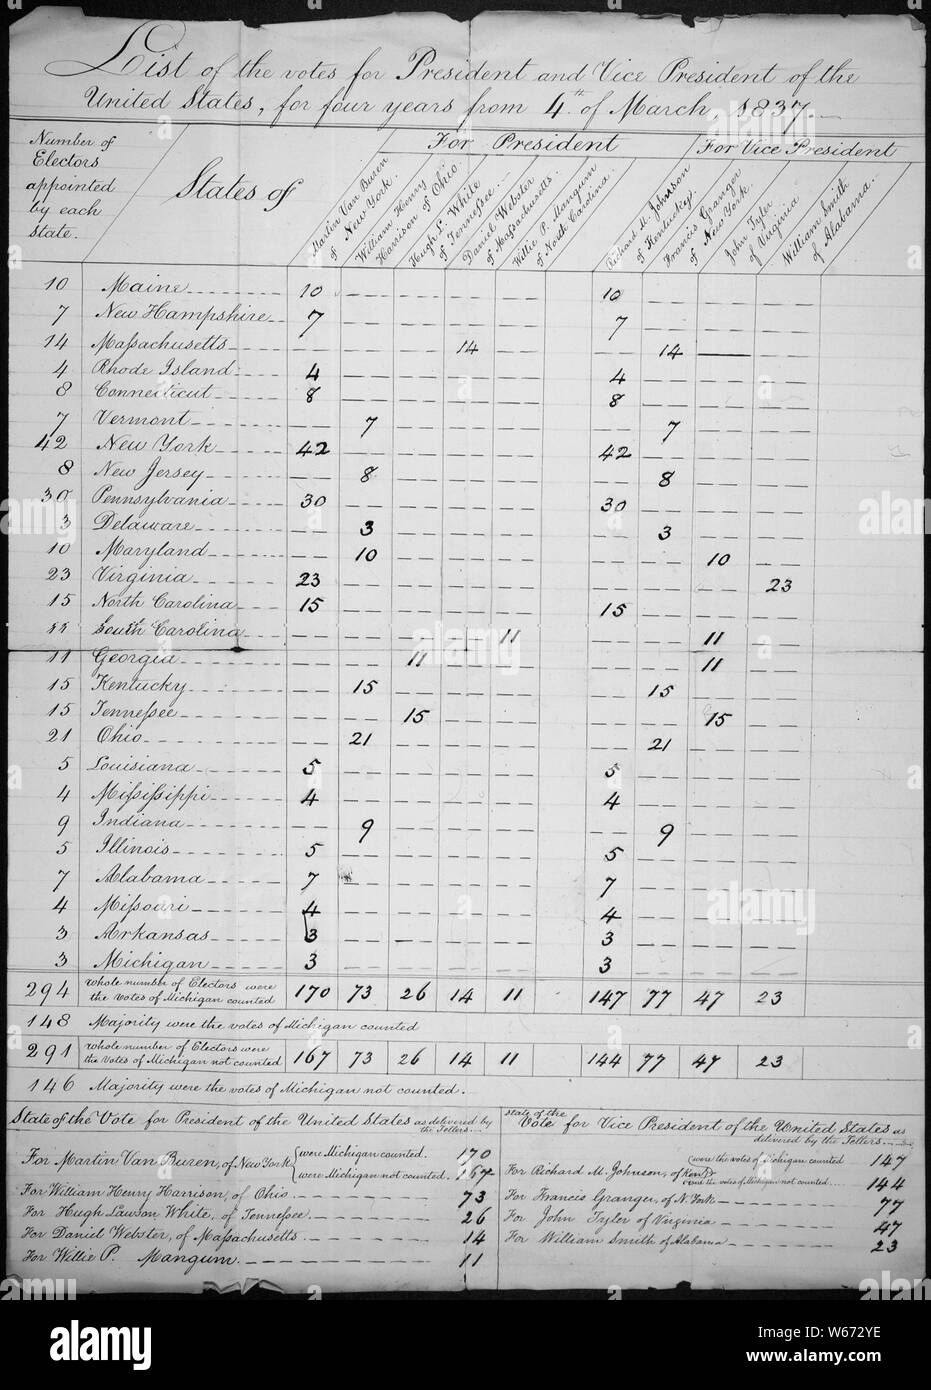 List of the votes for President and Vice President of the
United States, for four years from 4th of March 1837.
Number of
Electors
appointed
by each
State.
States of
For President
For Vice President
Martin Van Buren
of New York.
William Henry
Harrison of Ohio.
Hugh L. White
of Tennessee.
Daniel Webster
of Massachusetts.
Willie P. Mangum
of North Carolina.
Richard M. Johnson
of Kentucky.
Francis Granger
of New York.
John Tyler
of Virginia
William Smith
of Alabama.
10 Maine 10 10
7 New Hampshire 7 7
14 Massachusetts 14 14
4 Rhode Island 4 4
8 Connecticut 8 8
7 Vermont 7 7
42 New York 42 42
8 New Jersey 8 8
30 Pennsylvania 30 30
3 Delaware 3 3
10 Maryland 10 10
23 Virginia 23 23
15 North Carolina 15 15
11 South Carolina 11 11
11 Georgia 11 11
15 Kentucky 15 15
15 Tennessee 15 15
21 Ohio 21 21
5 Louisiana 5 5
4 Mississippi 4 4
9 Indiana 9 9
5 Illinois 5 5
7 Alabama 7 7
4 Missouri 4 4
3 Arkansas 3 3
3 Michigan 3 3
294 Whole number of Electors were
the votes of Michigan counted 170 73 26 14 11 147 77 47 23
148 Majority were the votes of Michigan counted
291 Whole number of Electors were
the votes of Michigan not counted 167 73 26 14 11 144 77 47 23
146 Majority were the votes of Michigan not counted.
State of the Vote for President of the United States as delivered by
the Tellers.
For Martin Van Buren, of New York were Michigan counted. 170
were Michigan not counted. 167
For William Henry Harrison, of Ohio. 73
For Hugh Lawson White, of Tennessee. 26
For Daniel Webster, of Massachusetts. 14
For Willie P. Mangum. 11
State of the
Vote for Vice President of the United States as
delivered by the Tellers.
were the votes of Michigan counted 147
For Richard M. Johnson, of Ken.
were the votes of Michigan not counted 144
For Francis Granger, of N. York 77
For John Tyler of Virginia 47
For William Smith of Alabama 23
alamy
alamy
Image ID: W672YE
www.alamy.com